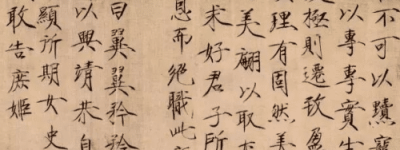 不可以黷寵
以專專實生
極則遷致盈
理有固然美
美翩以取尤
求好君子所
恩而絕職此
曰翼翼矜矜
以興靖恭自
顯所期女史
敢告庶姬